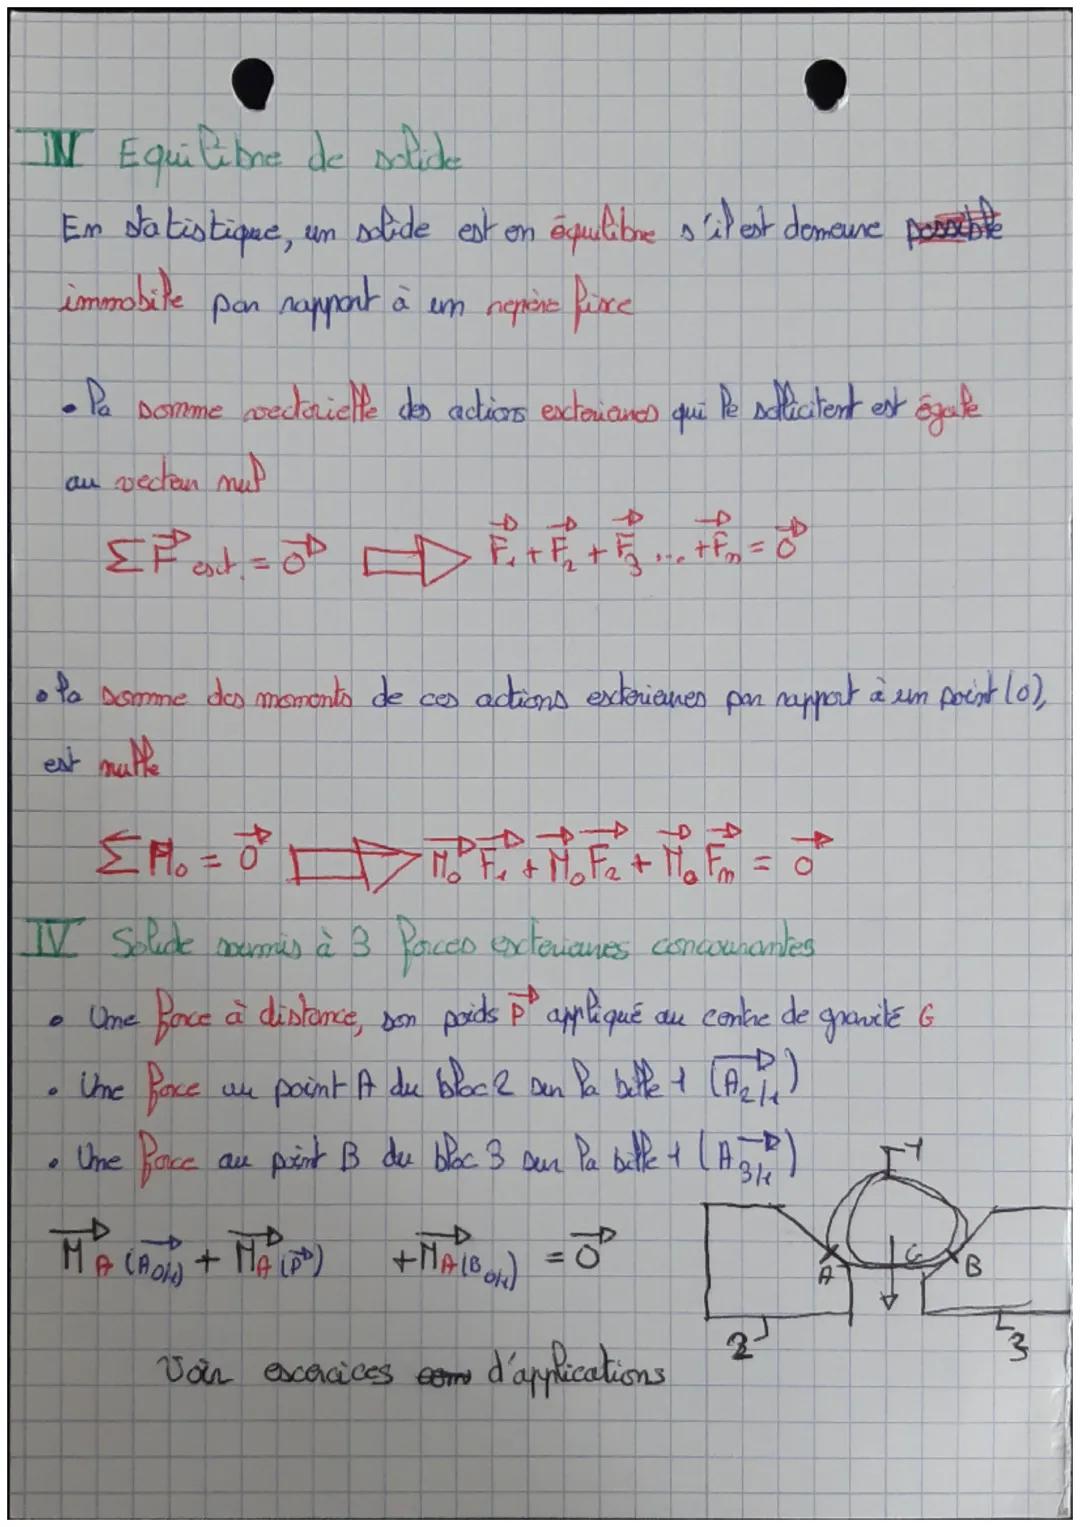 IV Equilibre de solide
En statistique, un solide est en équilibre s'il est demeure possible
immobile par rapport à un repère fixe
• la somme vectorielle des actions exterieures qui le sollicitent est égale
au vecteur nul
ΣF⃗ ext. = 0⃗ ⇒ F⃗₁ + F⃗₂ + F⃗₃ ... + F⃗n = 0⃗
• la somme des moments de ces actions exterieures par rapport à un point (0),
est nulle
ΣM₀ = 0⃗ ⇒ M⃗₀ F⃗₁ + M⃗₀ F⃗₂ + M⃗₀ F⃗n = 0⃗
IV Solide soumis à 3 forces exterieures concourantes
• Une force à distance, son poids P⃗ appliqué au centre de gravité G
• Une force au point A du bloc 2 sur la bille 1 (A⃗2/1)
• Une force au point B du bloc 3 sur la bille 1 (A⃗3/1)
M⃗A (A⃗0/1) + M⃗A (P⃗) + M⃗A (B0/1) = 0⃗
1
A G B
2 3
Voir excercices d'applications